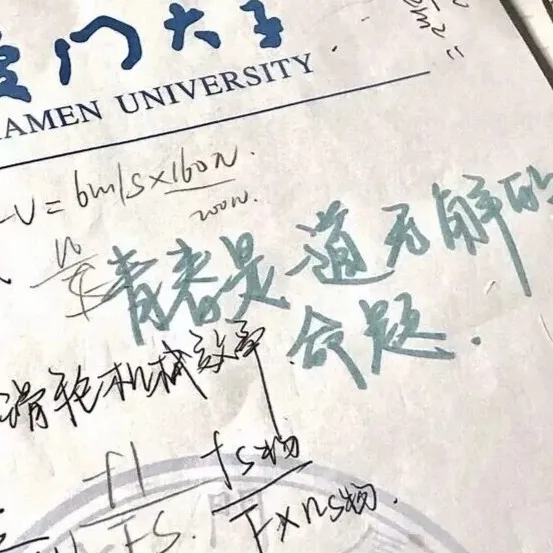 厦门大学
XIAMEN UNIVERSITY
m² =
V = 6m/s × 160N
200N.
青春是道无解的
命题.
滑轮机械效率
f l
fs物
FS.
F×ns物.
門